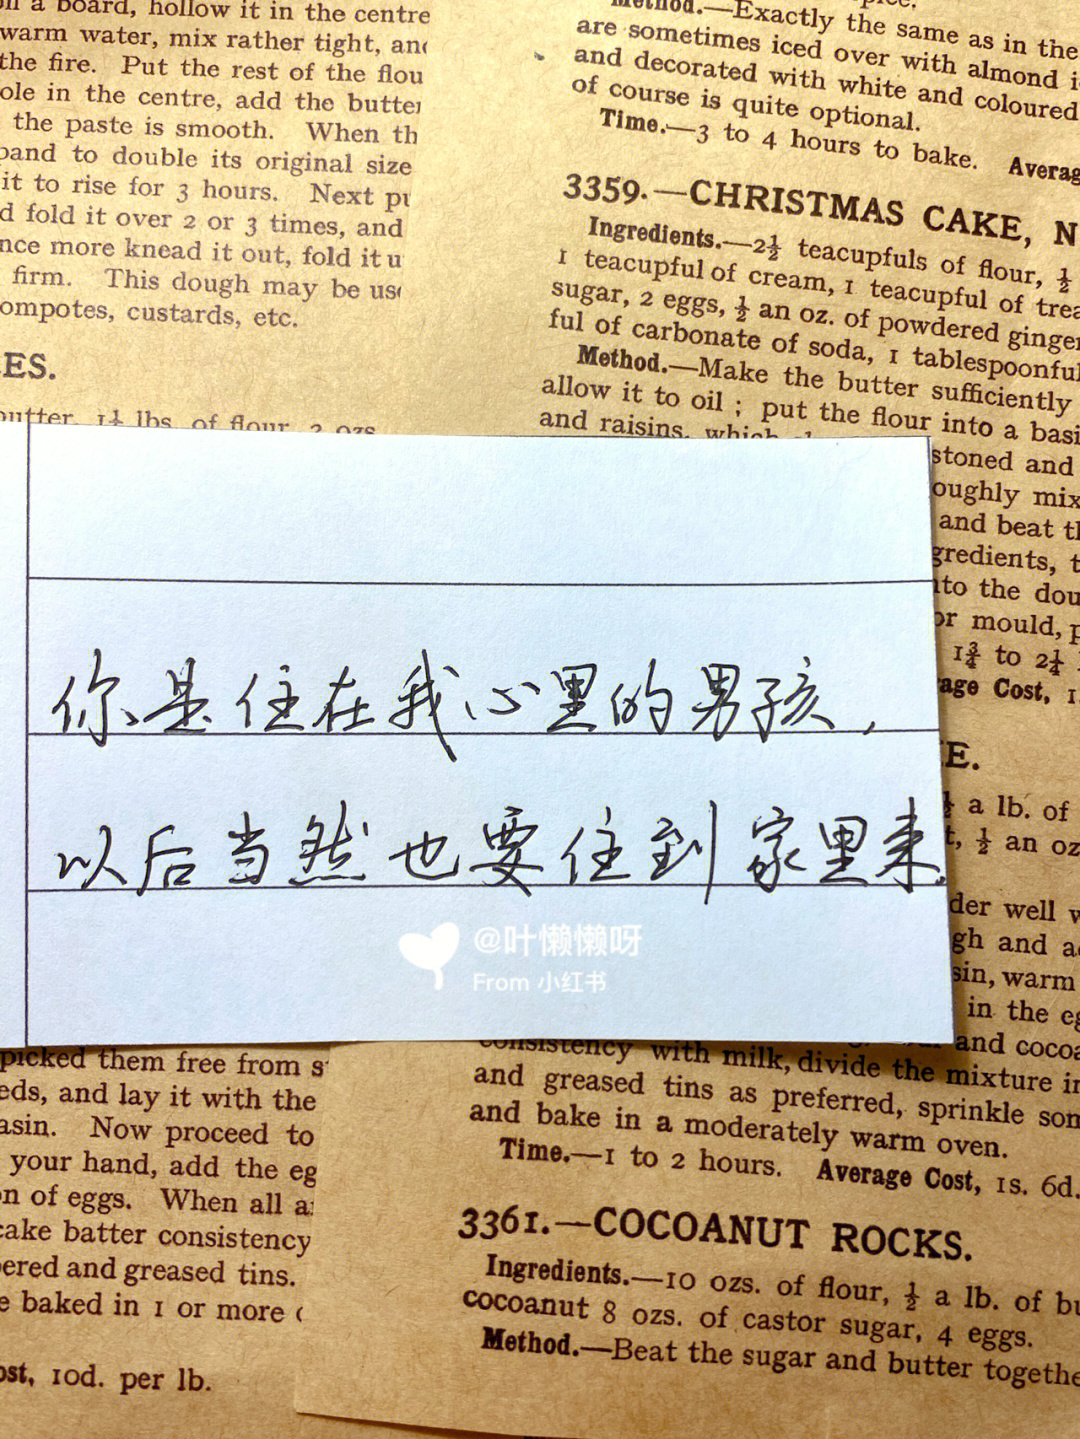 n a board, hollow it in the centre
warm water, mix rather tight, and
the fire. Put the rest of the flou
ole in the centre, add the butter
the paste is smooth. When th
pand to double its original size
it to rise for 3 hours. Next pu
d fold it over 2 or 3 times, and
nce more knead it out, fold it u
firm. This dough may be use
ompotes, custards, etc.
ES.
butter, 1¼ lbs. of flour, 2 ozs.
Method.—Exactly the same as in the
are sometimes iced over with almond i
and decorated with white and coloured
of course is quite optional.
Time.—3 to 4 hours to bake. Averag
3359.—CHRISTMAS CAKE, N
Ingredients.—2½ teacupfuls of flour, ½
1 teacupful of cream, 1 teacupful of trea
sugar, 2 eggs, ½ an oz. of powdered ginger
ful of carbonate of soda, 1 tablespoonful
Method.—Make the butter sufficiently
allow it to oil ; put the flour into a basi
and raisins, which
stoned and
oughly mix
and beat th
gredients, t
nto the dou
or mould, p
1¾ to 2¼
age Cost, 1
你是住在我心里的男孩，
以后当然也要住到家里来.
@叶懒懒呀
From 小红书
E.
½ a lb. of
t, ½ an oz
der well w
gh and a
sin, warm
in the eg
and cocoa
consistency with milk, divide the mixture in
and greased tins as preferred, sprinkle som
and bake in a moderately warm oven.
Time.—1 to 2 hours. Average Cost, 1s. 6d.
3361.—COCOANUT ROCKS.
Ingredients.—10 ozs. of flour, ½ a lb. of bu
cocoanut 8 ozs. of castor sugar, 4 eggs.
Method.—Beat the sugar and butter togethe
picked them free from s
eds, and lay it with the
asin. Now proceed to
your hand, add the eg
on of eggs. When all a
cake batter consistency
ered and greased tins.
e baked in 1 or more
ost, 10d. per lb.